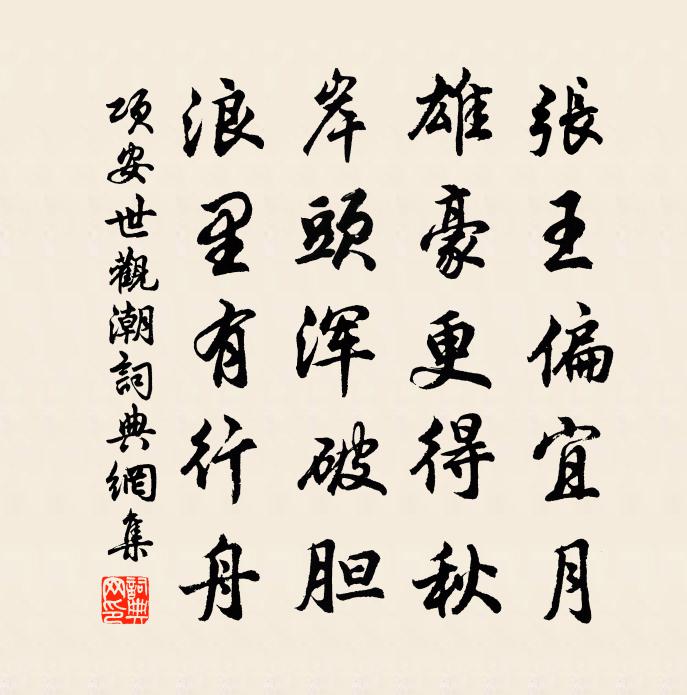 張王偏宜月
雄豪更得秋
岸頭浑破胆
浪里有行舟
项安世觀潮詞典網集
詞典
网印